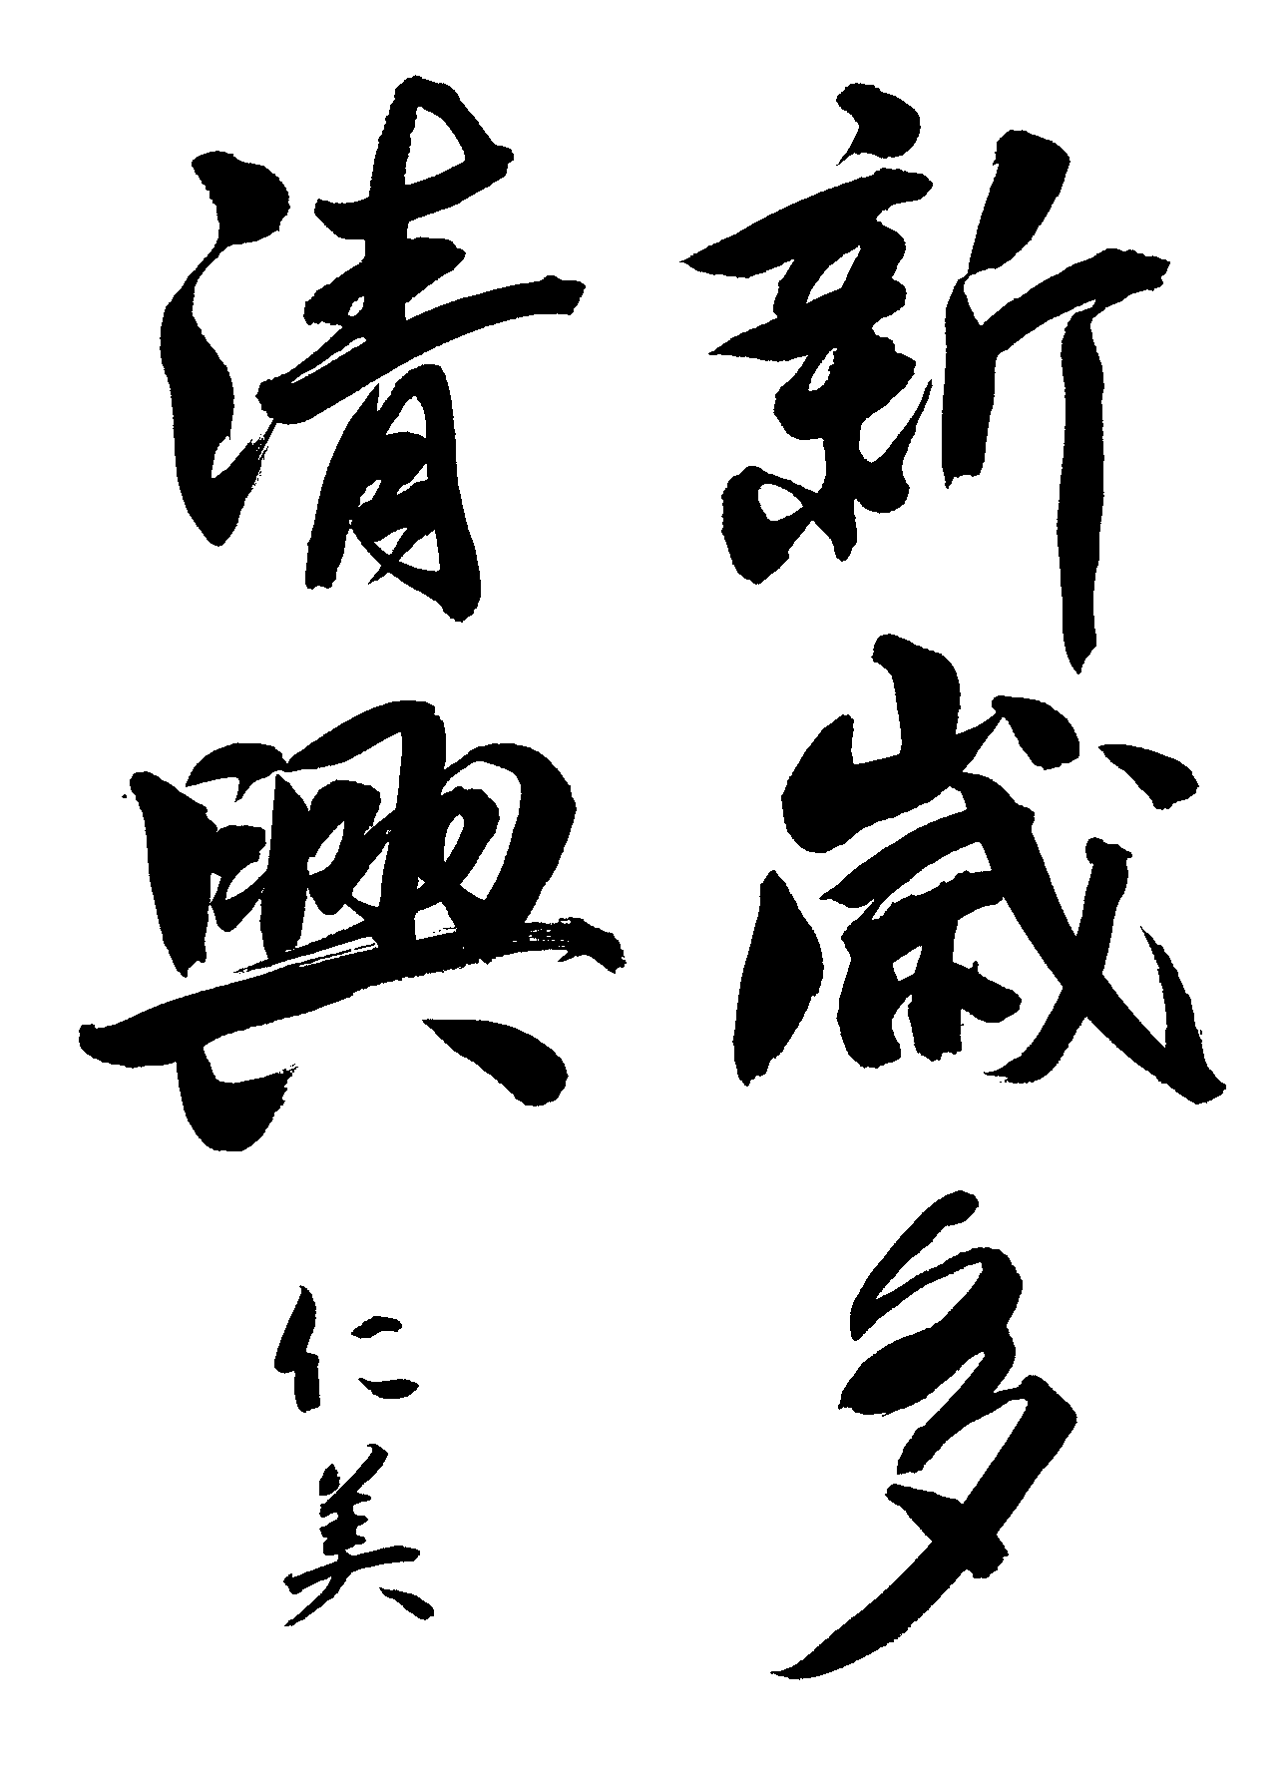 新歳多
清興
仁美